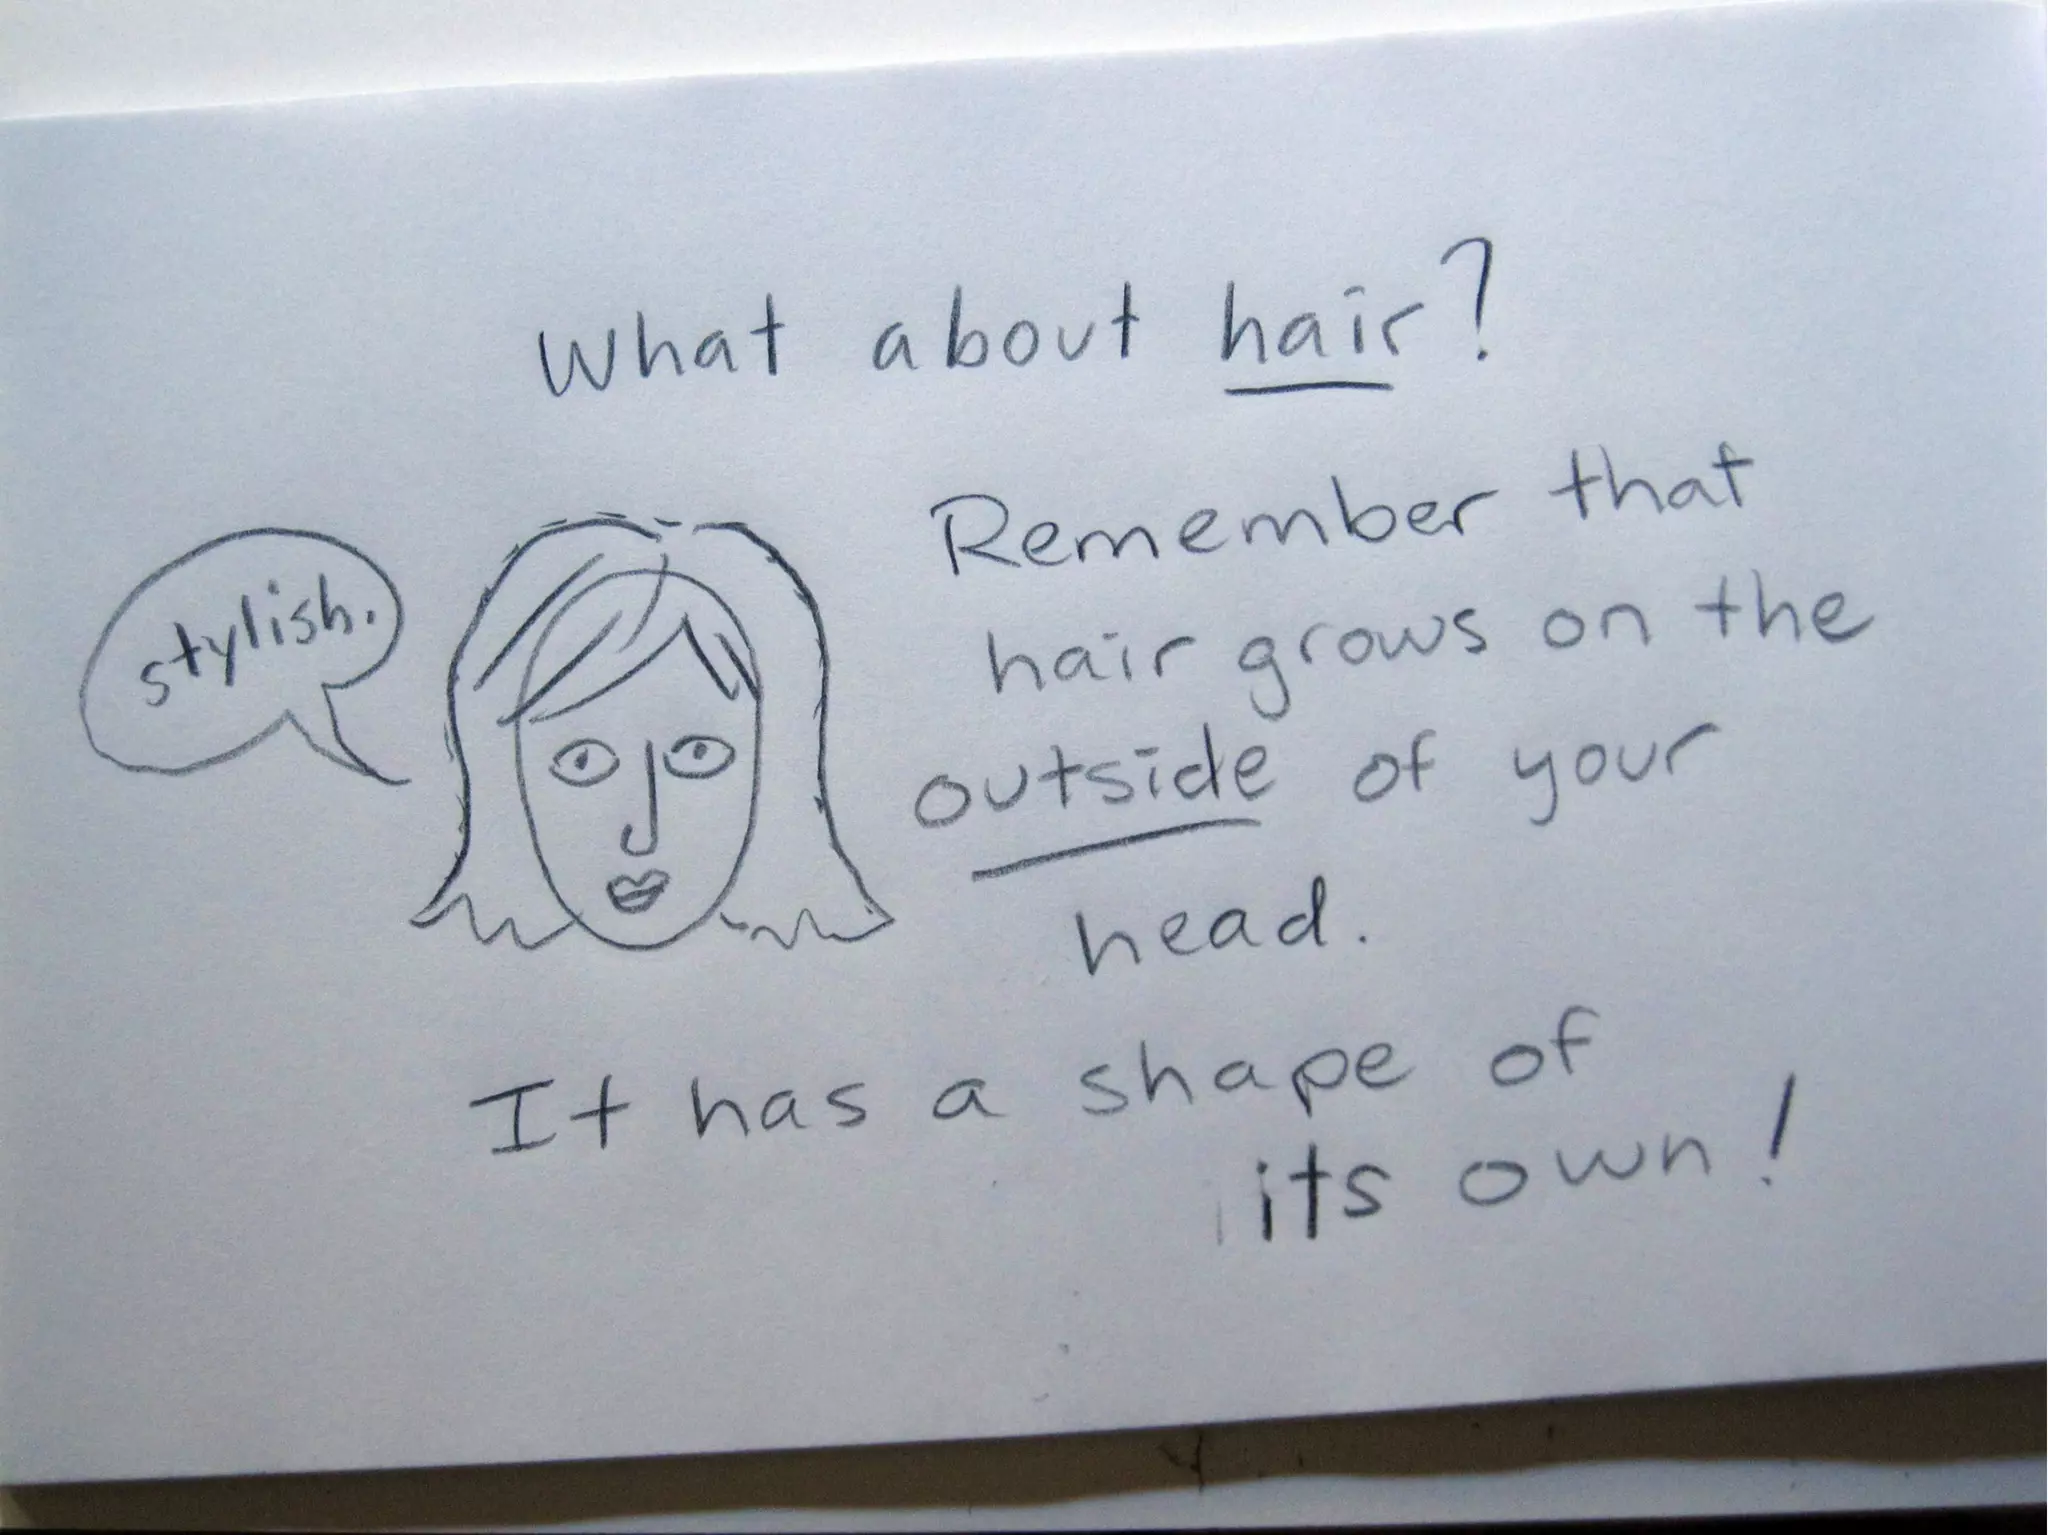 What about hair?
stylish.
Remember that
hair grows on the
outside of your
head.
It has a shape of
its own!